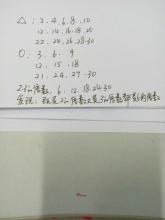 △: 2.4.6.8.10
12.14.16.18.20
22.24.26.28.30
○: 3.6.9
12.15.18
21.24.27.30
2.3的倍数. 6.12.18.24.30
发现: 既是2的倍数又是3的倍数都是6的倍数